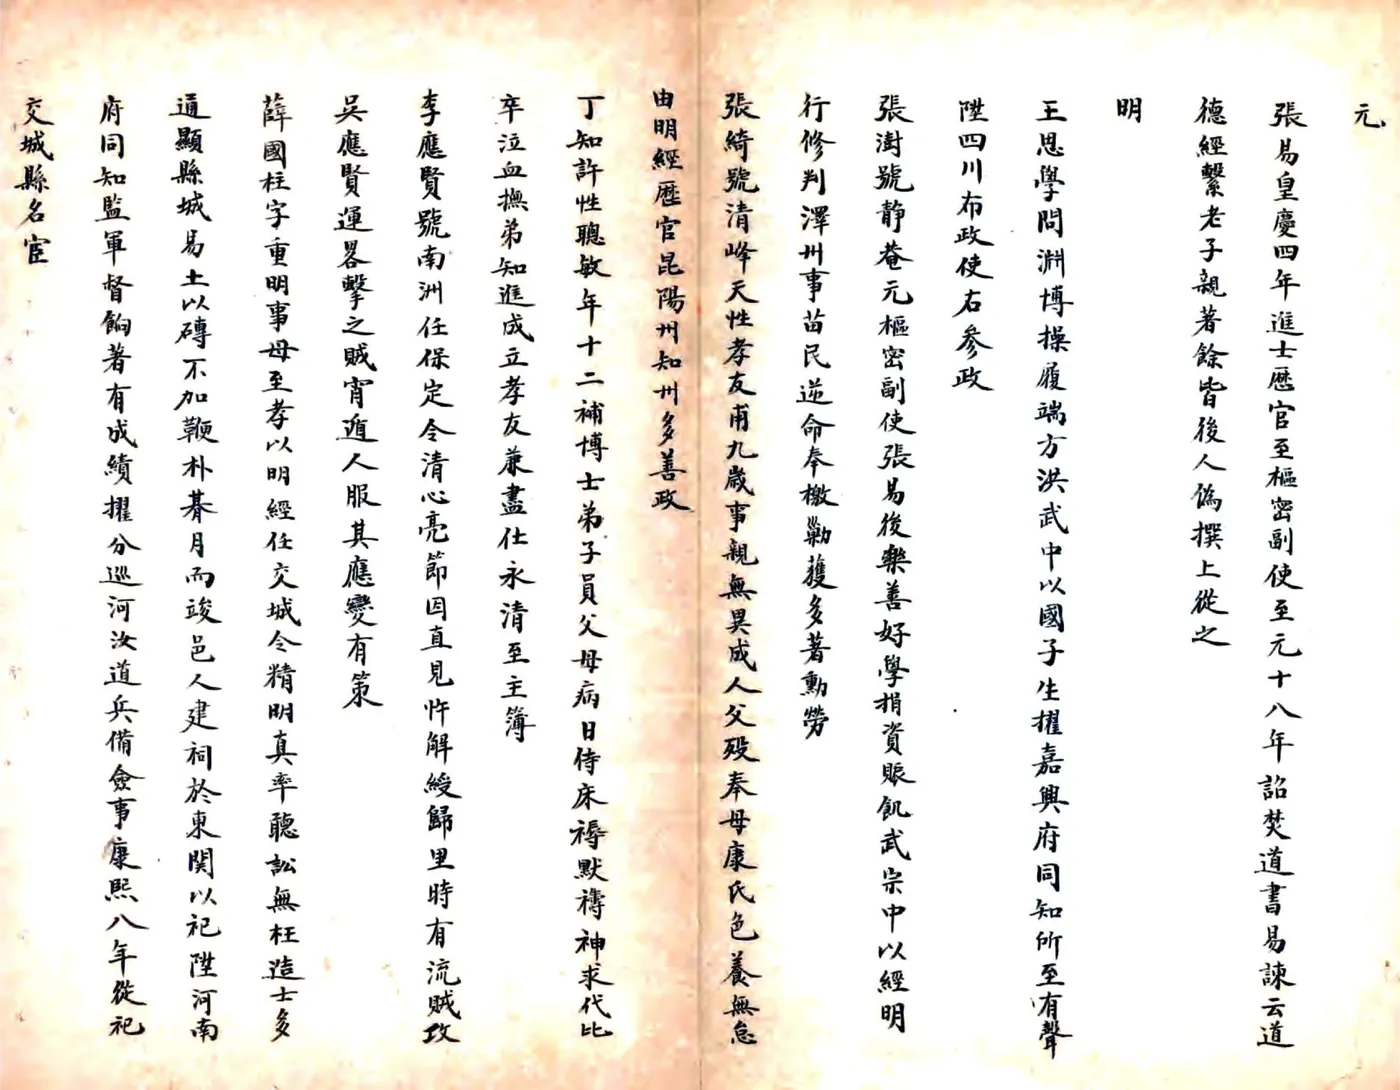 元
張易皇慶四年進士歷官至樞密副使至元十八年詔焚道書易諫云道
德經繫老子親著餘皆後人偽撰上從之
明
王思學問淵博操履端方洪武中以國子生擢嘉興府同知所至有聲
陞四川布政使右參政
張澍號靜菴元樞密副使張易後樂善好學捐資賑飢武宗中以經明
行修判澤州事苗民逆命奉檄勦獲多著勳勞
張綺號清峰天性孝友甫九歲事親無異成人父歿奉母康氏色養無怠
由明經歷官昆陽州知州多善政
丁知許性聰敏年十二補博士弟子員父母病日侍床褥默禱神求代比
卒泣血撫弟知進成立孝友兼盡仕永清至主簿
李應賢號南洲任保定令清心亮節因直見忤解綬歸里時有流賊攻
吳應賢運畧擊之賊宵遁人服其應變有策
薛國柱字重明事母至孝以明經任交城令精明真率聽訟無枉造士多
通顯縣城易土以磚不加鞭朴朞月而竣邑人建祠於東関以祀陞河南
府同知監軍督餉著有成績擢分巡河汝道兵備僉事康熙八年從祀
交城縣名宦